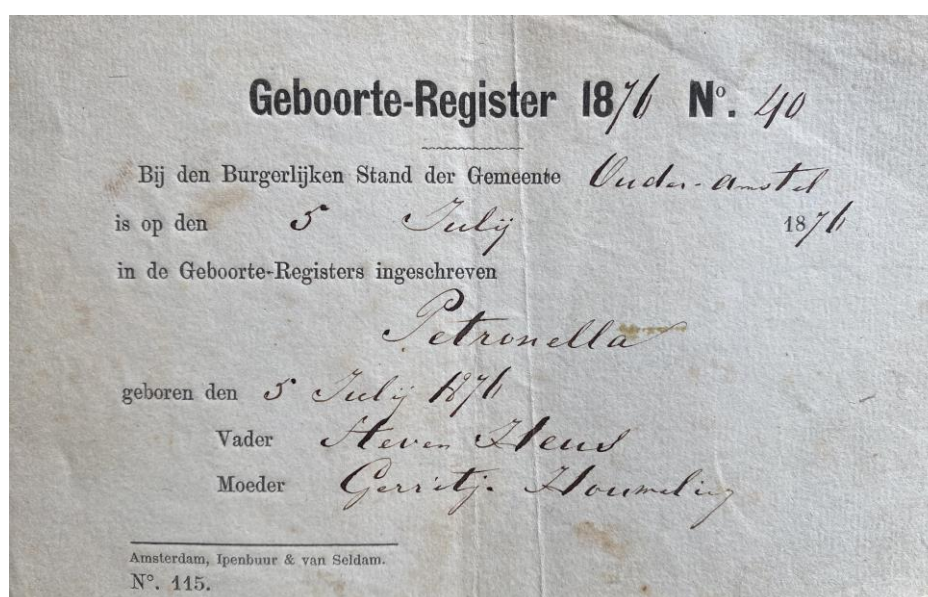 Geboorte-Register 1876 No. 40
Bij den Burgerlijken Stand der Gemeente Ouder-Amstel
is op den 5 Julij 1876
in de Geboorte-Registers ingeschreven
Petronella
geboren den 5 Julij 1876
Vader Steven Heus
Moeder Gerritje Houmeling
Amsterdam, Ipenbuur & van Seldam.
No. 115.